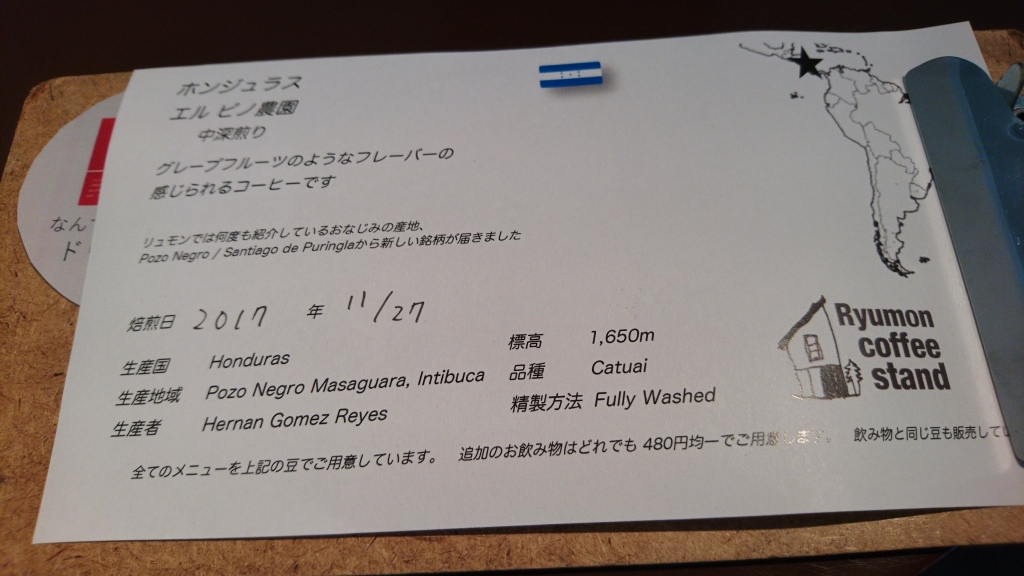 ホンジュラス
エル ピノ農園
中深煎り
グレープフルーツのようなフレーバーの
感じられるコーヒーです
リュモンでは何度も紹介しているおなじみの産地、
Pozo Negro / Santiago de Puringlaから新しい銘柄が届きました
焙煎日 2017 年 11/27
生産国 Honduras
生産地域 Pozo Negro Masaguara, Intibuca
生産者 Hernan Gomez Reyes
標高 1,650m
品種 Catuai
精製方法 Fully Washed
Ryumon
coffee
stand
全てのメニューを上記の豆でご用意しています。 追加のお飲み物はどれでも 480円均一でご用意します。 飲み物と同じ豆も販売してい
なん
ド